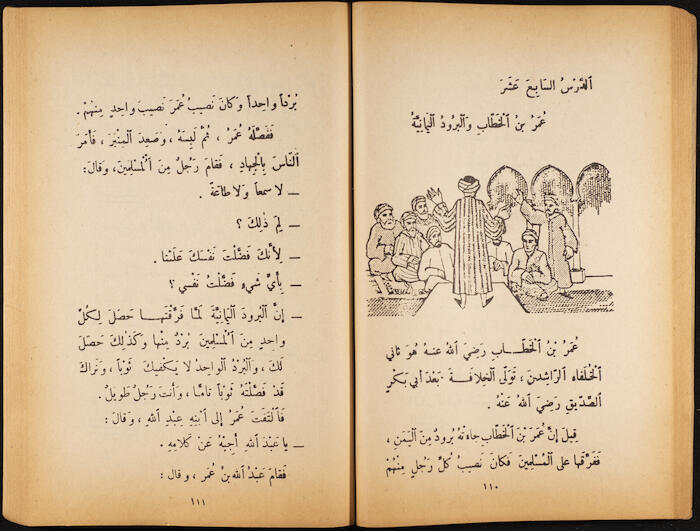 الدَّرْسُ السَّابِعَ عَشَرَ
عُمَرُ بْنُ الْخَطَّابِ وَالْبُرُودُ الْيَمَانِيَّةُ
عُمَرُ بْنُ الْخَطَّابِ رَضِيَ اللهُ عَنهُ هُوَ ثَانِي
الْخُلَفَاءِ الرَّاشِدِينَ ، تَوَلَّى الْخِلَافَةَ بَعْدَ أَبِي بَكْرٍ
الصِّدِّيقِ رَضِيَ اللهُ عَنْهُ .
قِيلَ إِنَّ عُمَرَ بْنَ الْخَطَّابِ جَاءَتْهُ بُرُودٌ مِنَ الْيَمَنِ ،
فَفَرَّقَهَا عَلَى الْمُسْلِمِينَ فَكَانَ نَصِيبُ كُلِّ رَجُلٍ مِنْهُمْ
١١٠
بُرْدًا وَاحِدًا وَكَانَ نَصِيبُ عُمَرَ نَصِيبَ وَاحِدٍ مِنْهُمْ .
فَفَصَّلَهُ عُمَرُ ، ثُمَّ لَبِسَهُ ، وَصَعِدَ الْمِنْبَرَ ، فَأَمَرَ
النَّاسَ بِالْجِهَادِ ، فَقَامَ رَجُلٌ مِنَ الْمُسْلِمِينَ ، وَقَالَ :
ــ لَا سَمْعًا وَلَا طَاعَةً .
ــ لِمَ ذٰلِكَ ؟
ــ لِأَنَّكَ فَضَّلْتَ نَفْسَكَ عَلَيْنَا .
ــ بِأَيِّ شَيْءٍ فَضَّلْتُ نَفْسِي ؟
ــ إِنَّ الْبُرُودَ الْيَمَانِيَّةَ لَمَّا فَرَّقْتَهَا حَصَلَ لِكُلِّ
وَاحِدٍ مِنَ الْمُسْلِمِينَ بُرْدٌ مِنْهَا وَكَذٰلِكَ حَصَلَ
لَكَ ، وَالْبُرْدُ الْوَاحِدُ لَا يَكْفِيكَ ثَوْبًا ، وَنَرَاكَ
قَدْ فَصَّلْتَهُ ثَوْبًا تَامًّا ، وَأَنْتَ رَجُلٌ طَوِيلٌ .
فَالْتَفَتَ عُمَرُ إِلَى ابْنِهِ عَبْدِ اللهِ ، وَقَالَ :
ــ يَا عَبْدَ اللهِ أَجِبْهُ عَنْ كَلَامِهِ .
فَقَامَ عَبْدُ اللهِ بْنُ عُمَرَ ، وَقَالَ :
١١١